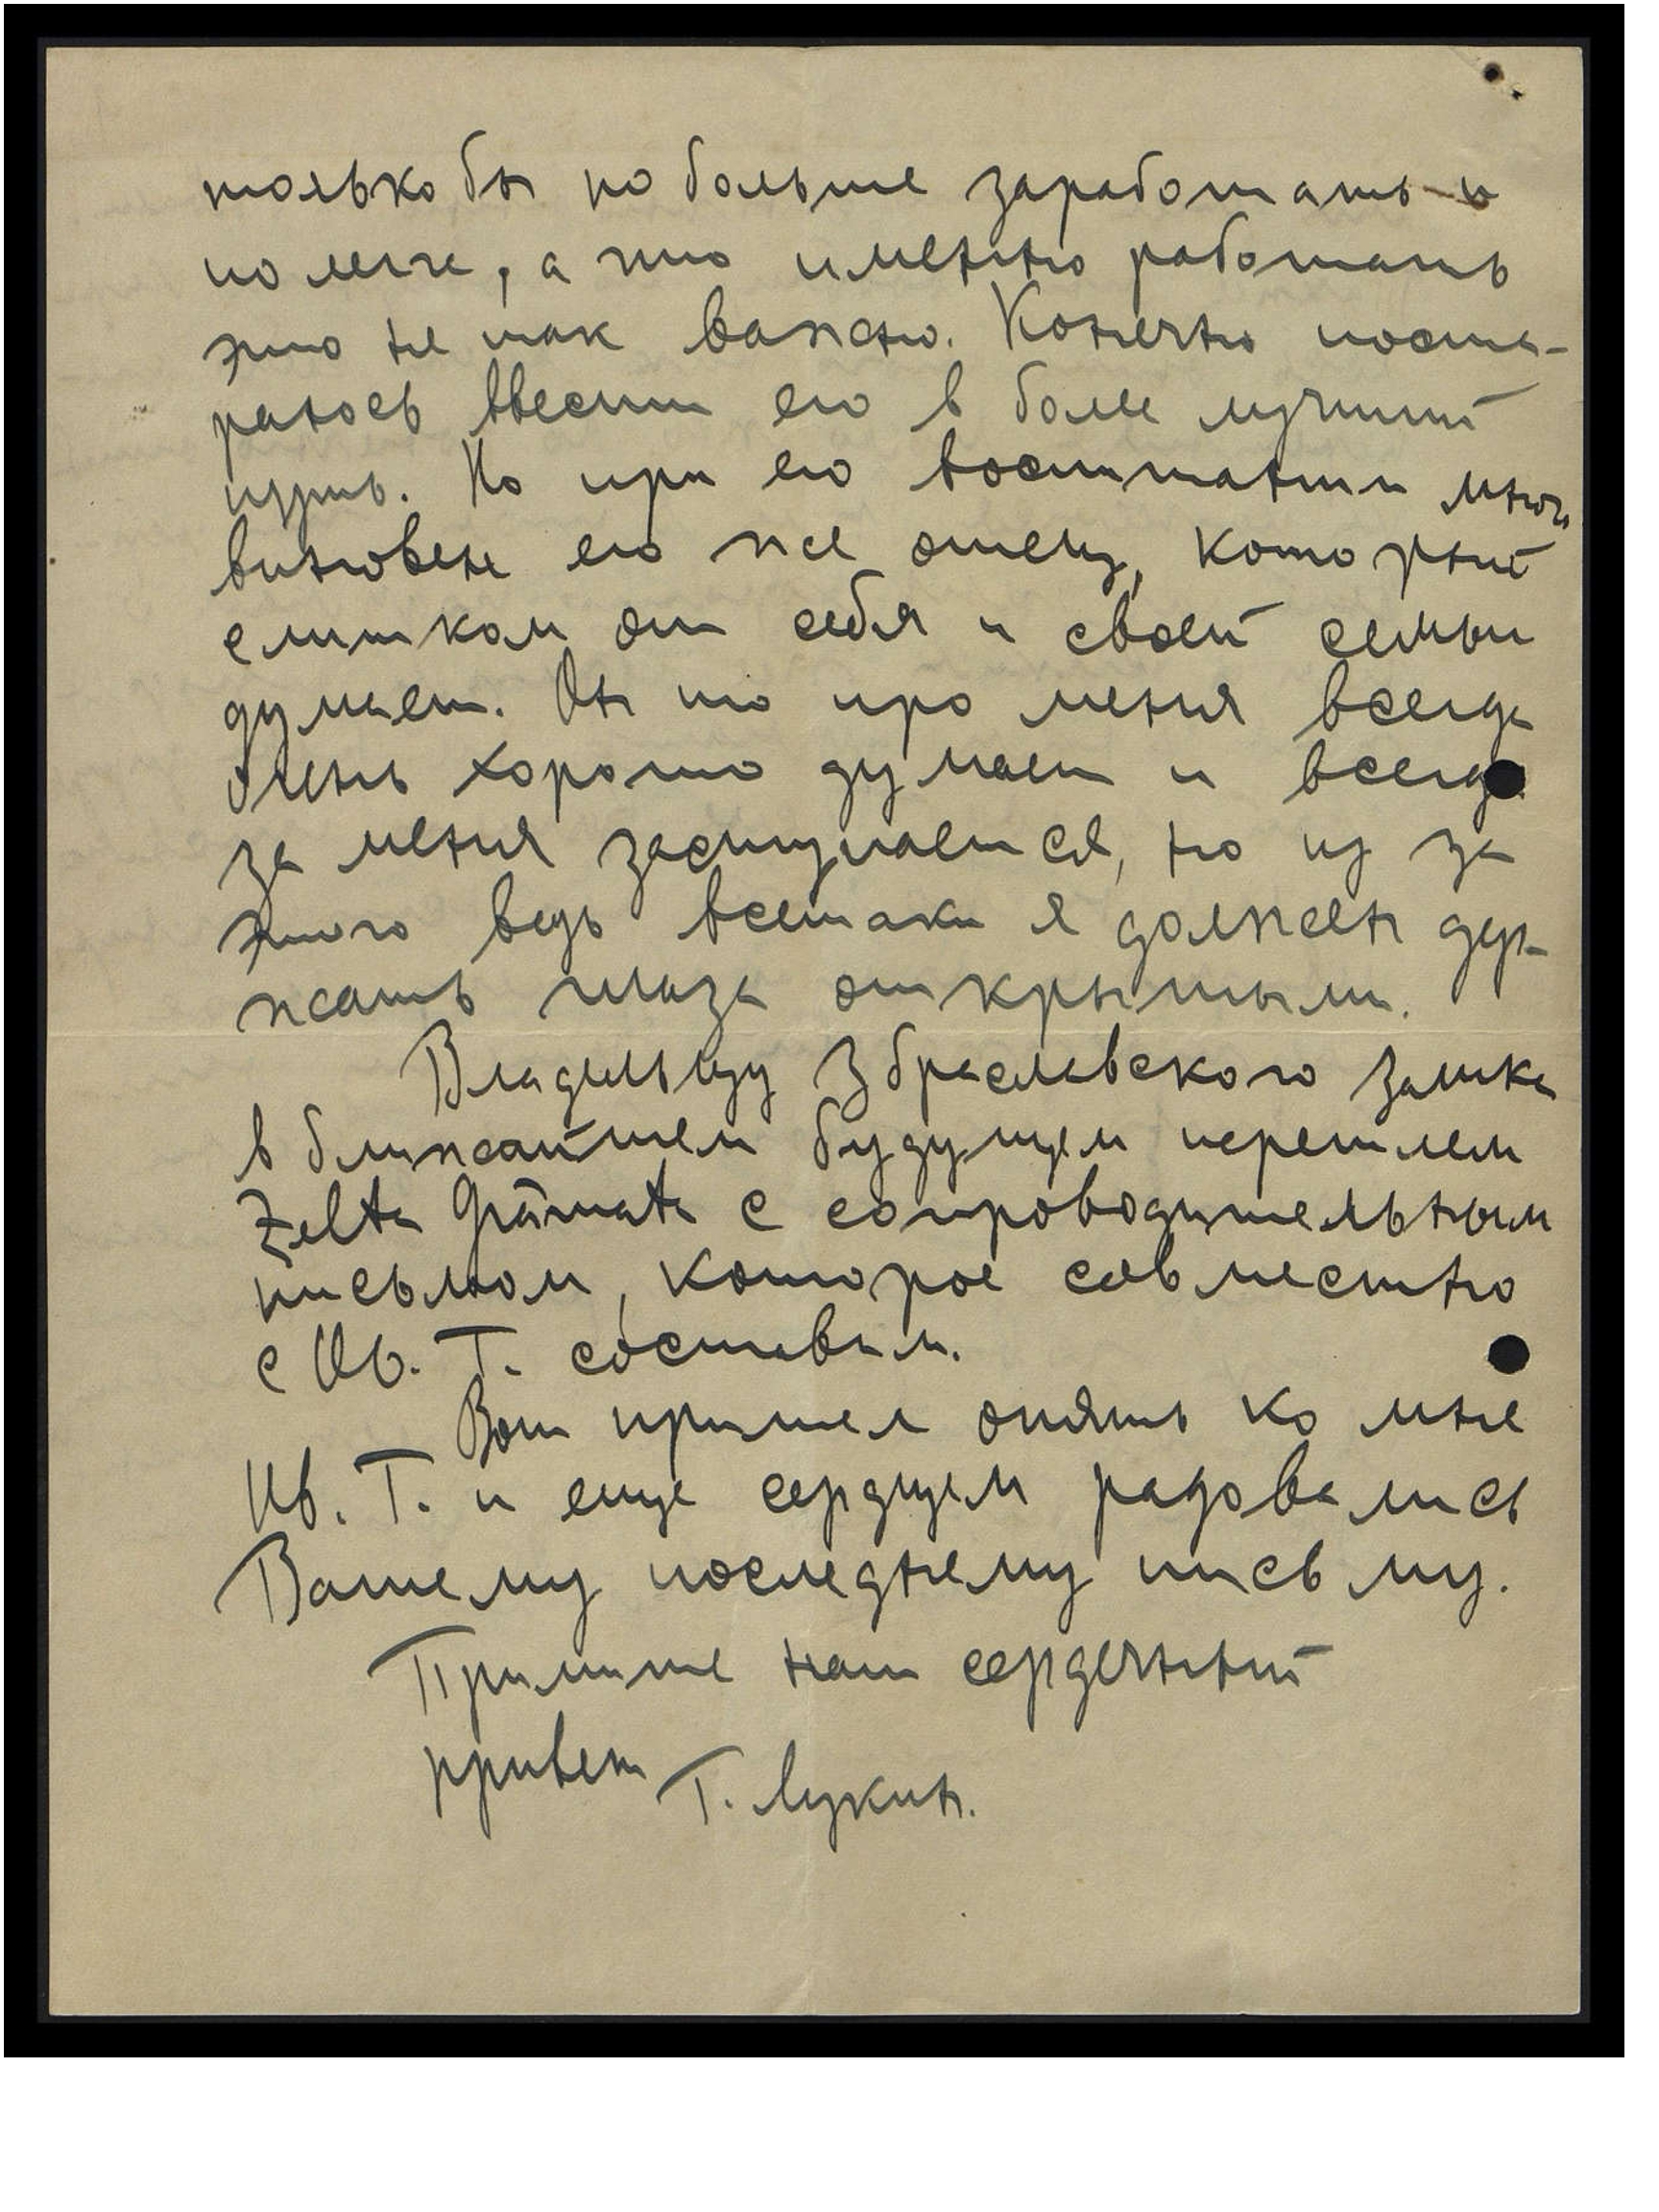 только бы по больше заработать и
по легче, а что именно работать
это не так важно. Конечно поста-
раюсь ввести его в более лучший
путь. Но при его воспитании много
виновен его же отец, который
слишком от себя и своей семьи
думает. Он то про меня всегда
очень хорошо думает и всегда
за меня заступается, но из за
этого ведь всетаки я должен дер-
жать глаза открытыми.
Владельцу Збраславского замка
в ближайшем будущем перешлем
Zelta Grāmata с сопроводительным
письмом, которое совместно
с Ив. Г. составим.
Вот пришел опять ко мне
Ив. Г. и еще сердцем радовались
Вашему последнему письму.
Примите наш сердечный
привет Г. Лукин.